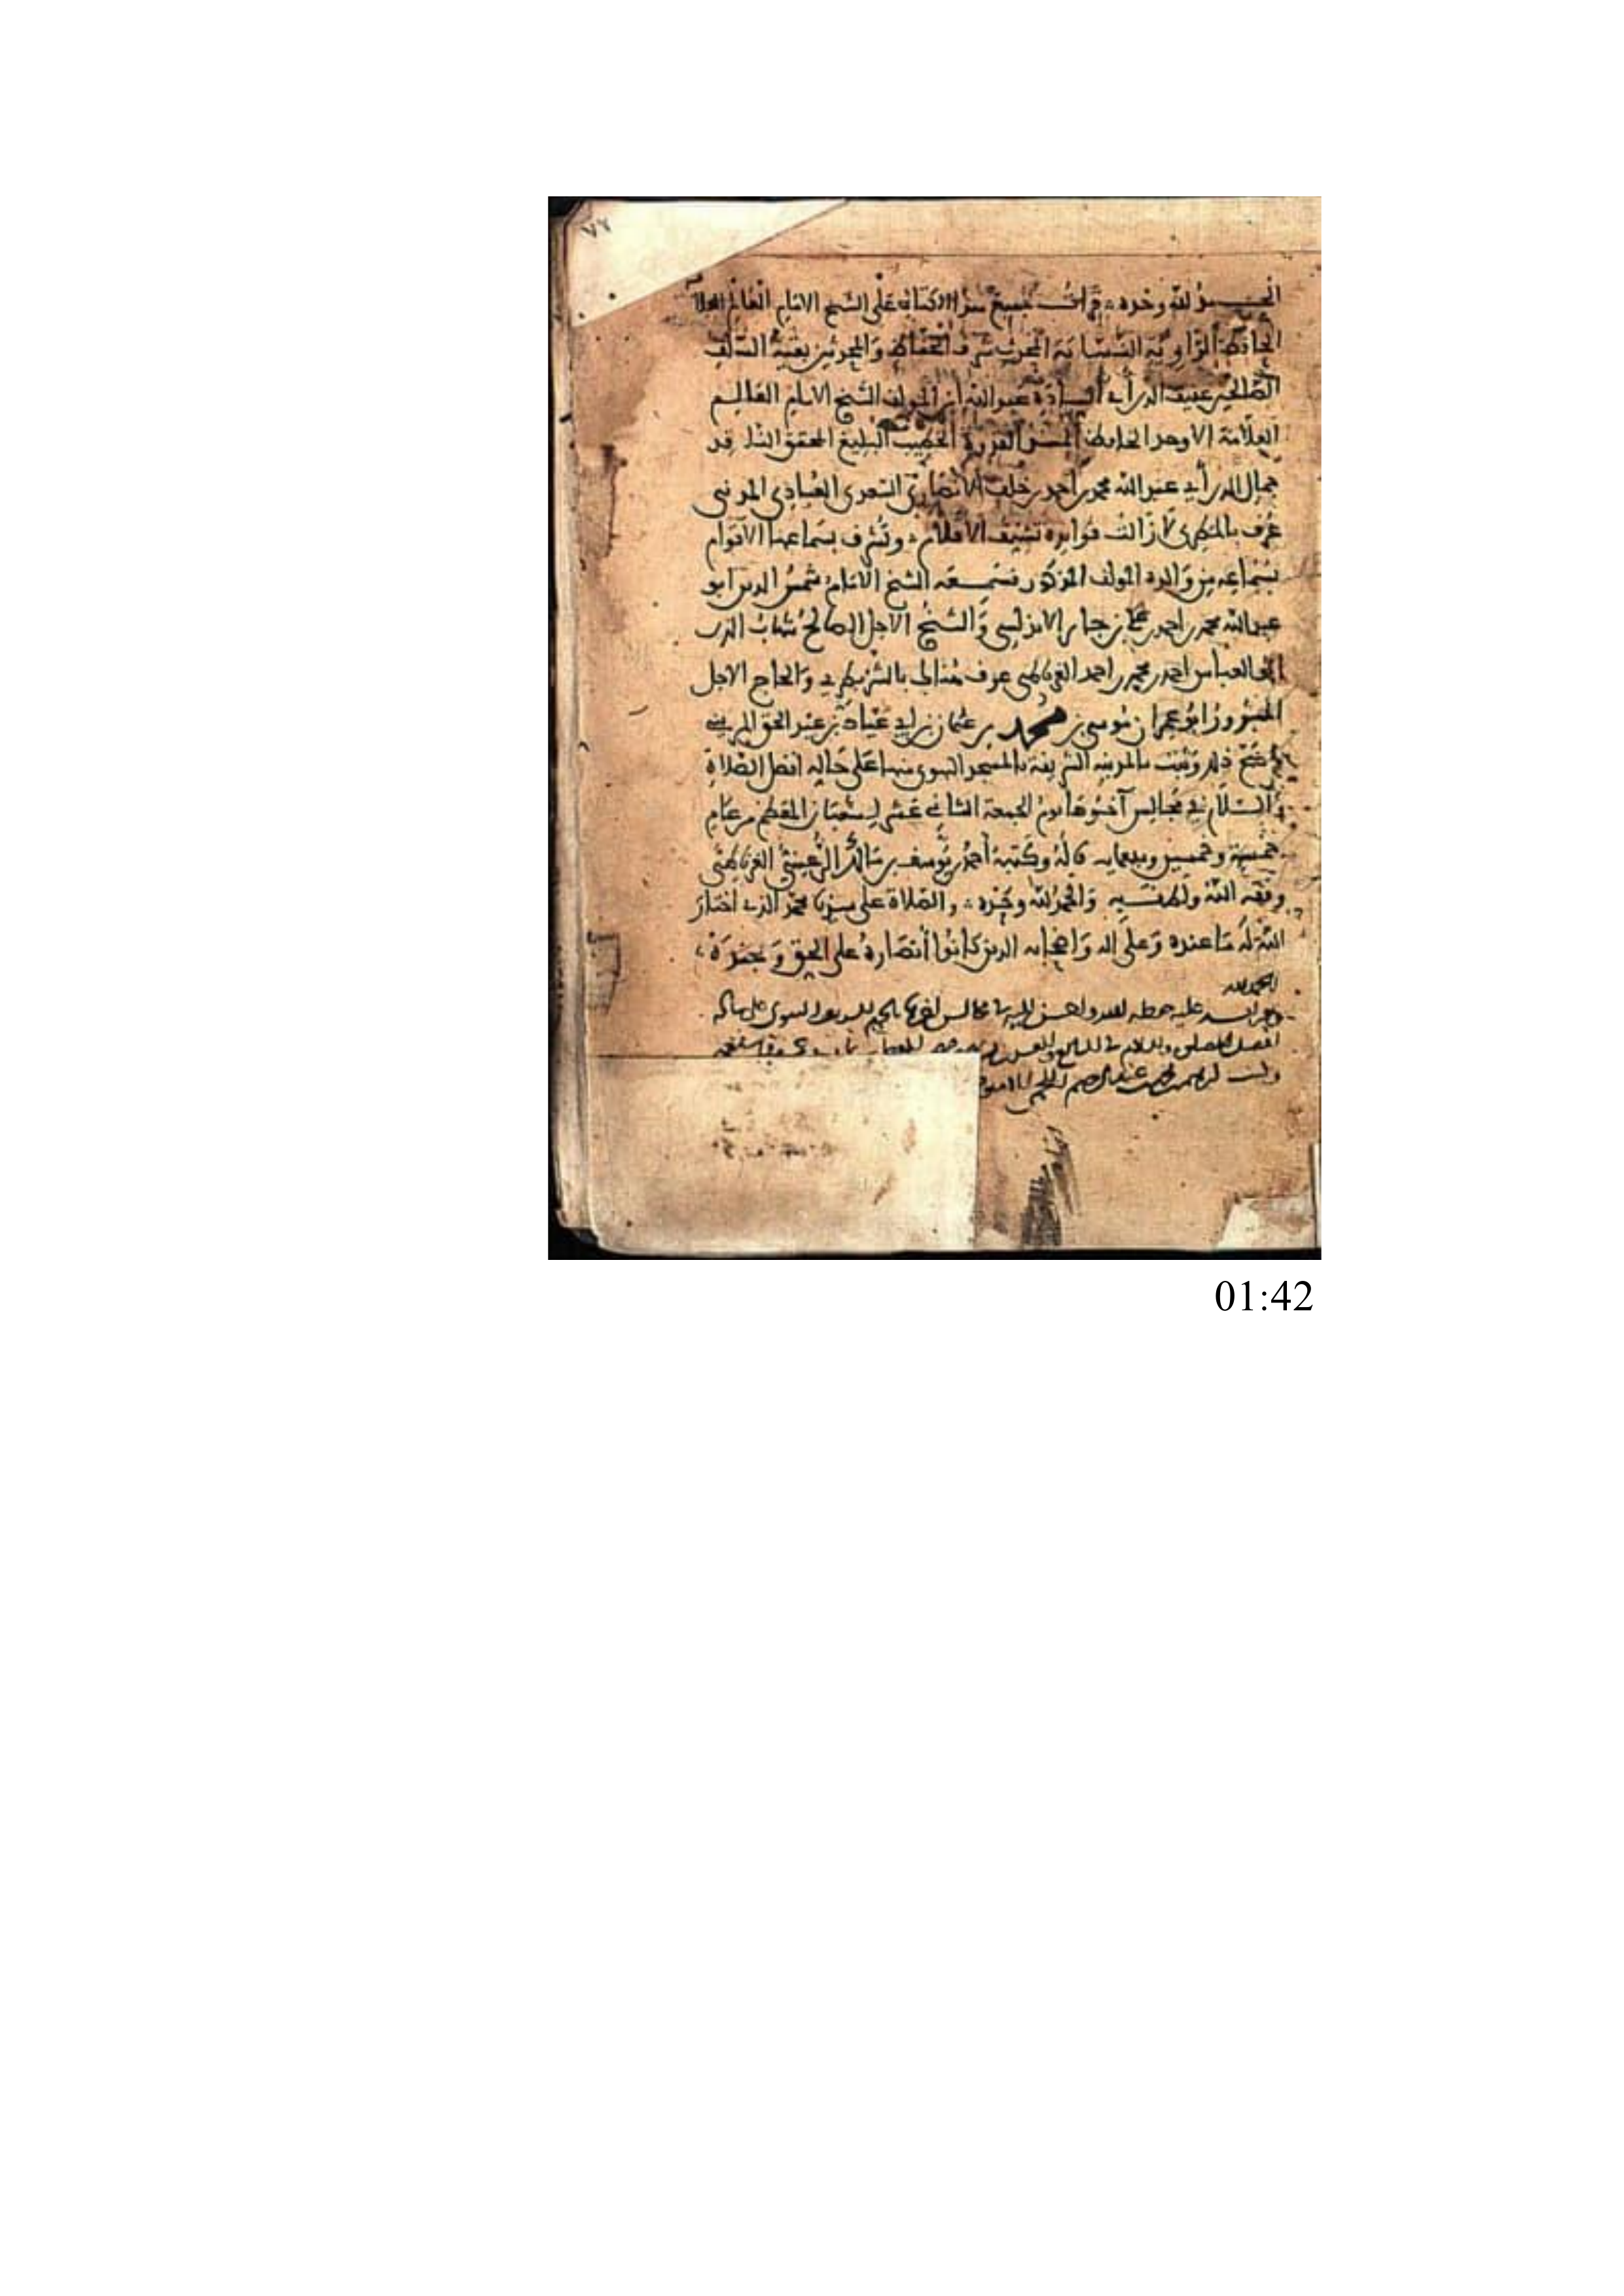 ٧٢
الحمد لله وحده قرأت جميع هذا الكتاب على الشيخ الامام العالم العلا
الحافظ الراوية النسابة المحدث شرف الحفاظ والمحدثين بقية السلف
الصالحين عفيف الدين أبي السيادة عبد الله ابن المولف الشيخ الامام العالم
العلامة الاوحد الحافظ الخطيب البليغ المحقق الناقد
جمال الدين أبي عبد الله محمد بن أحمد بن خلف الأنصاري السعدي العبادي المدني
عرف بالمطري لا زالت فوائده تشنف الاقلام وتشرف بسماعها الاقوام
بسماعه من والده المولف المذكور فسمعه الشيخ الامام شمس الدين ابو
عبد الله محمد بن احمد بن علي بن جابر الاندلسي والشيخ الاجل الصالح شهاب الدين
ابو العباس احمد بن محمد بن احمد الغرناطي عرف هنالك والحاج الاجل
المبرور ابو عمران موسى بن محمد بن عثمان بن عبد الحق المريني
وصح ذلك وثبت بالمدينة الشريفة بالمسجد النبوي منها على حاله افضل الصلاة
والسلام في مجالس آخرها يوم الجمعة الثاني عشر لشعبان المعظم من عام
خمسة وخمسين وسبعمايه قاله وكتبه أحمد بن يوسف بن مالك الرعيني الغرناطي
وفقه الله ولطف به والحمد لله وحده والصلاة على سيدنا محمد الذي اختار
الله له ما عنده وعلى اله واصحابه الذين كانوا أنصاره على الحق وجنده
الحمد لله
عليه مجالس اخرها بالحرم النبوي على ساكنه
افضل
01:42